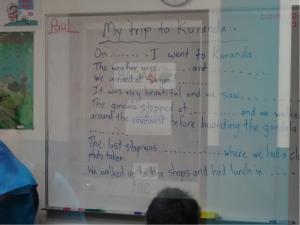 Paul
My trip to Kuranda:-
On ........ I went to Kuranda
The weather was ...... and
We arrived at
It was very beautiful and we saw
The gondola stopped at .......... and we we
around the rainforest before boarding the gondola
The last stop was ............ where we had a
photo taken.
We walked to the shops and had lunch in